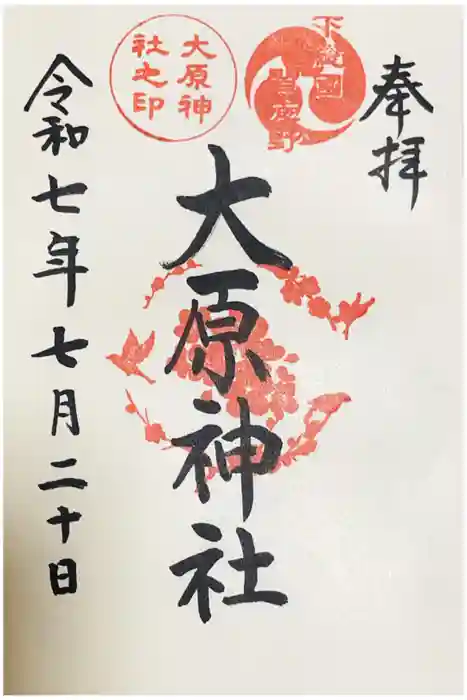 奉拝
下総國
習志野
大原神社
大原神
社之印
令和七年七月二十日